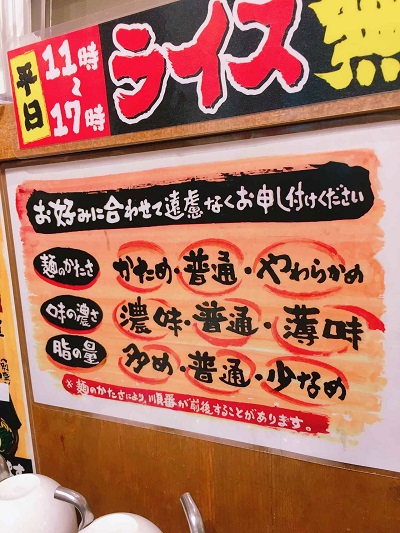 平日
11時
〜
17時
ライス無
お好みに合わせて遠慮なくお申し付けください
麺のかたさ かため・普通・やわらかめ
味の濃さ 濃味・普通・薄味
脂の量 多め・普通・少なめ
※麺のかたさにより、順番が前後することがあります。